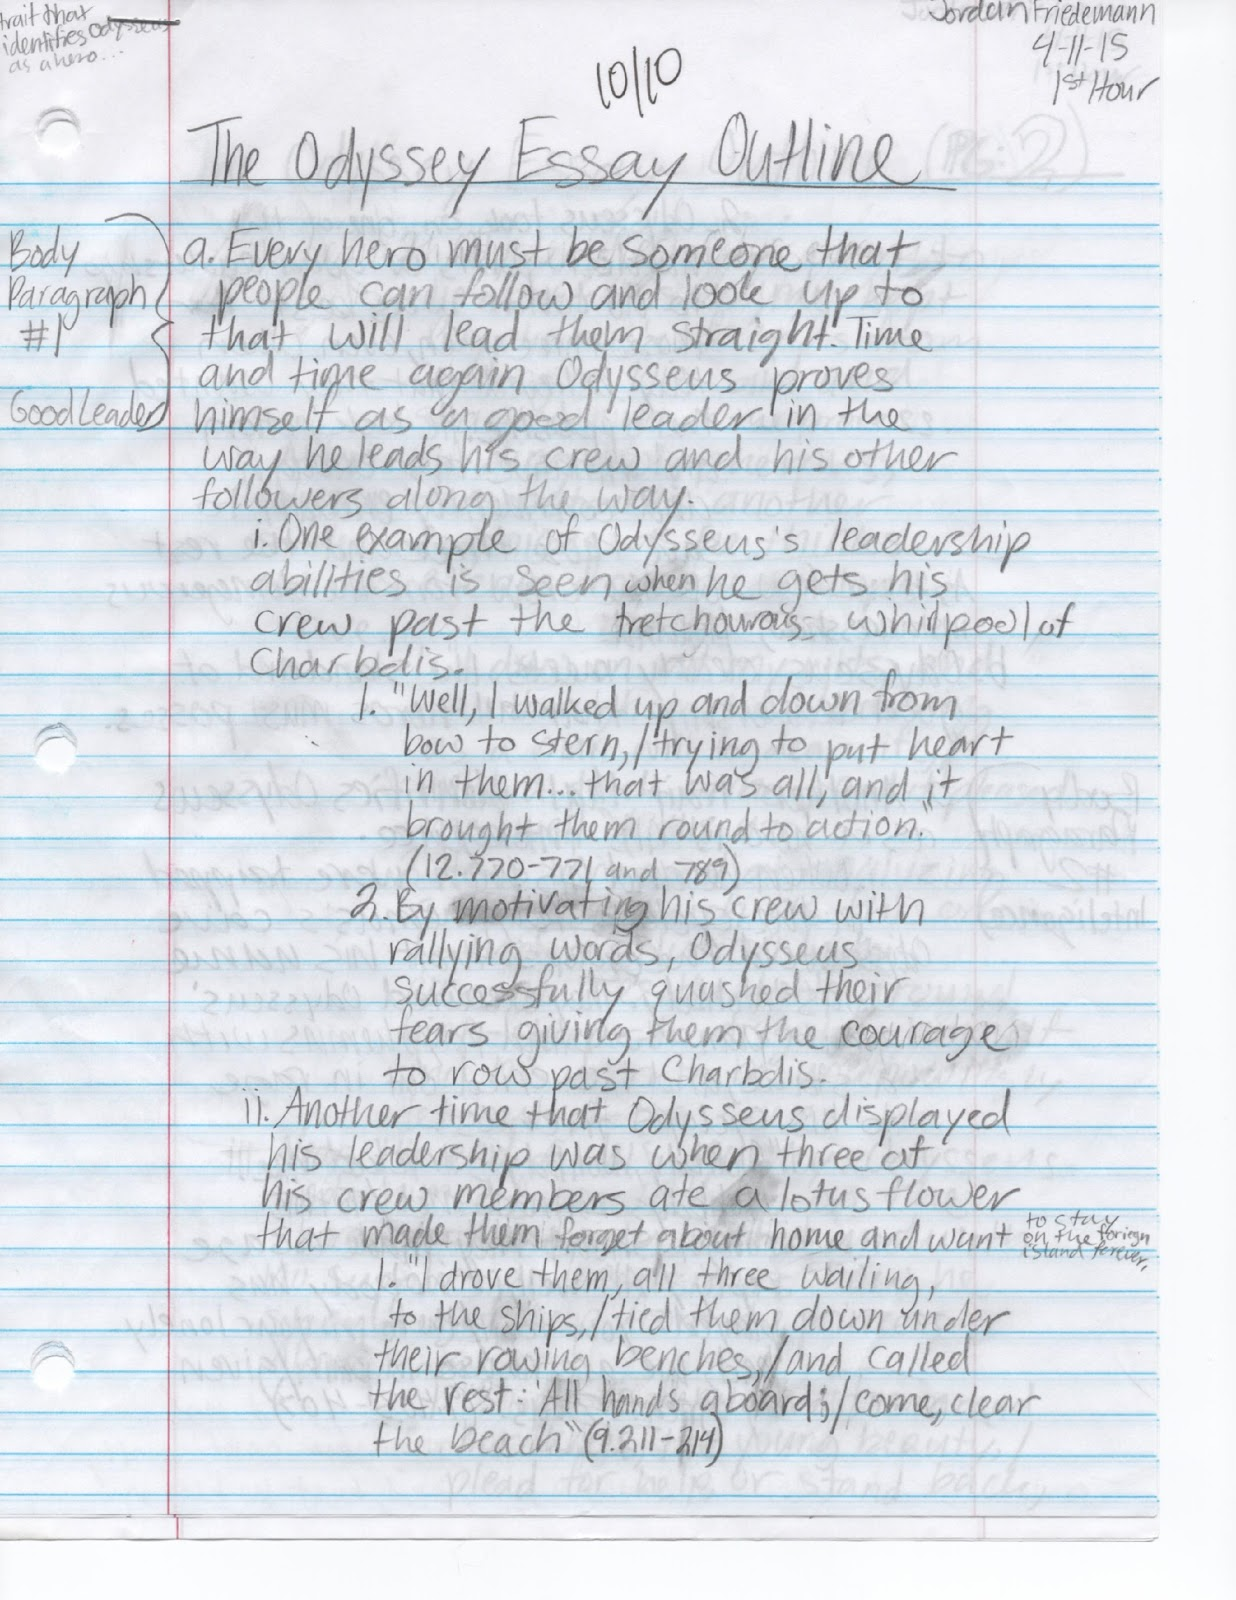 trait that
identifies Odysseus
as a hero...
Jordan Friedemann
4-11-15
1st Hour
10/10
The Odyssey Essay Outline
(PG: 2)
Body
Paragraph
#1
Good Leader
a. Every hero must be someone that
people can follow and look up to
that will lead them straight. Time
and time again Odysseus proves
himself as a good leader in the
way he leads his crew and his other
followers along the way.
i. One example of Odysseus's leadership
abilities is seen when he gets his
crew past the tretchourous whirlpool of
Charbdis.
1. "Well, I walked up and down from
bow to stern,/trying to put heart
in them...that was all, and it
brought them round to action."
(12.770-771 and 789)
2. By motivating his crew with
rallying words, Odysseus
successfully quashed their
fears giving them the courage
to row past Charbdis.
ii. Another time that Odysseus displayed
his leadership was when three of
his crew members ate a lotus flower
that made them forget about home and want to stay
on the foriegn
island forever.
1. "I drove them, all three wailing,
to the ships,/tied them down under
their rowing benches,/and called
the rest: 'All hands aboard;/come, clear
the beach" (9.211-214)